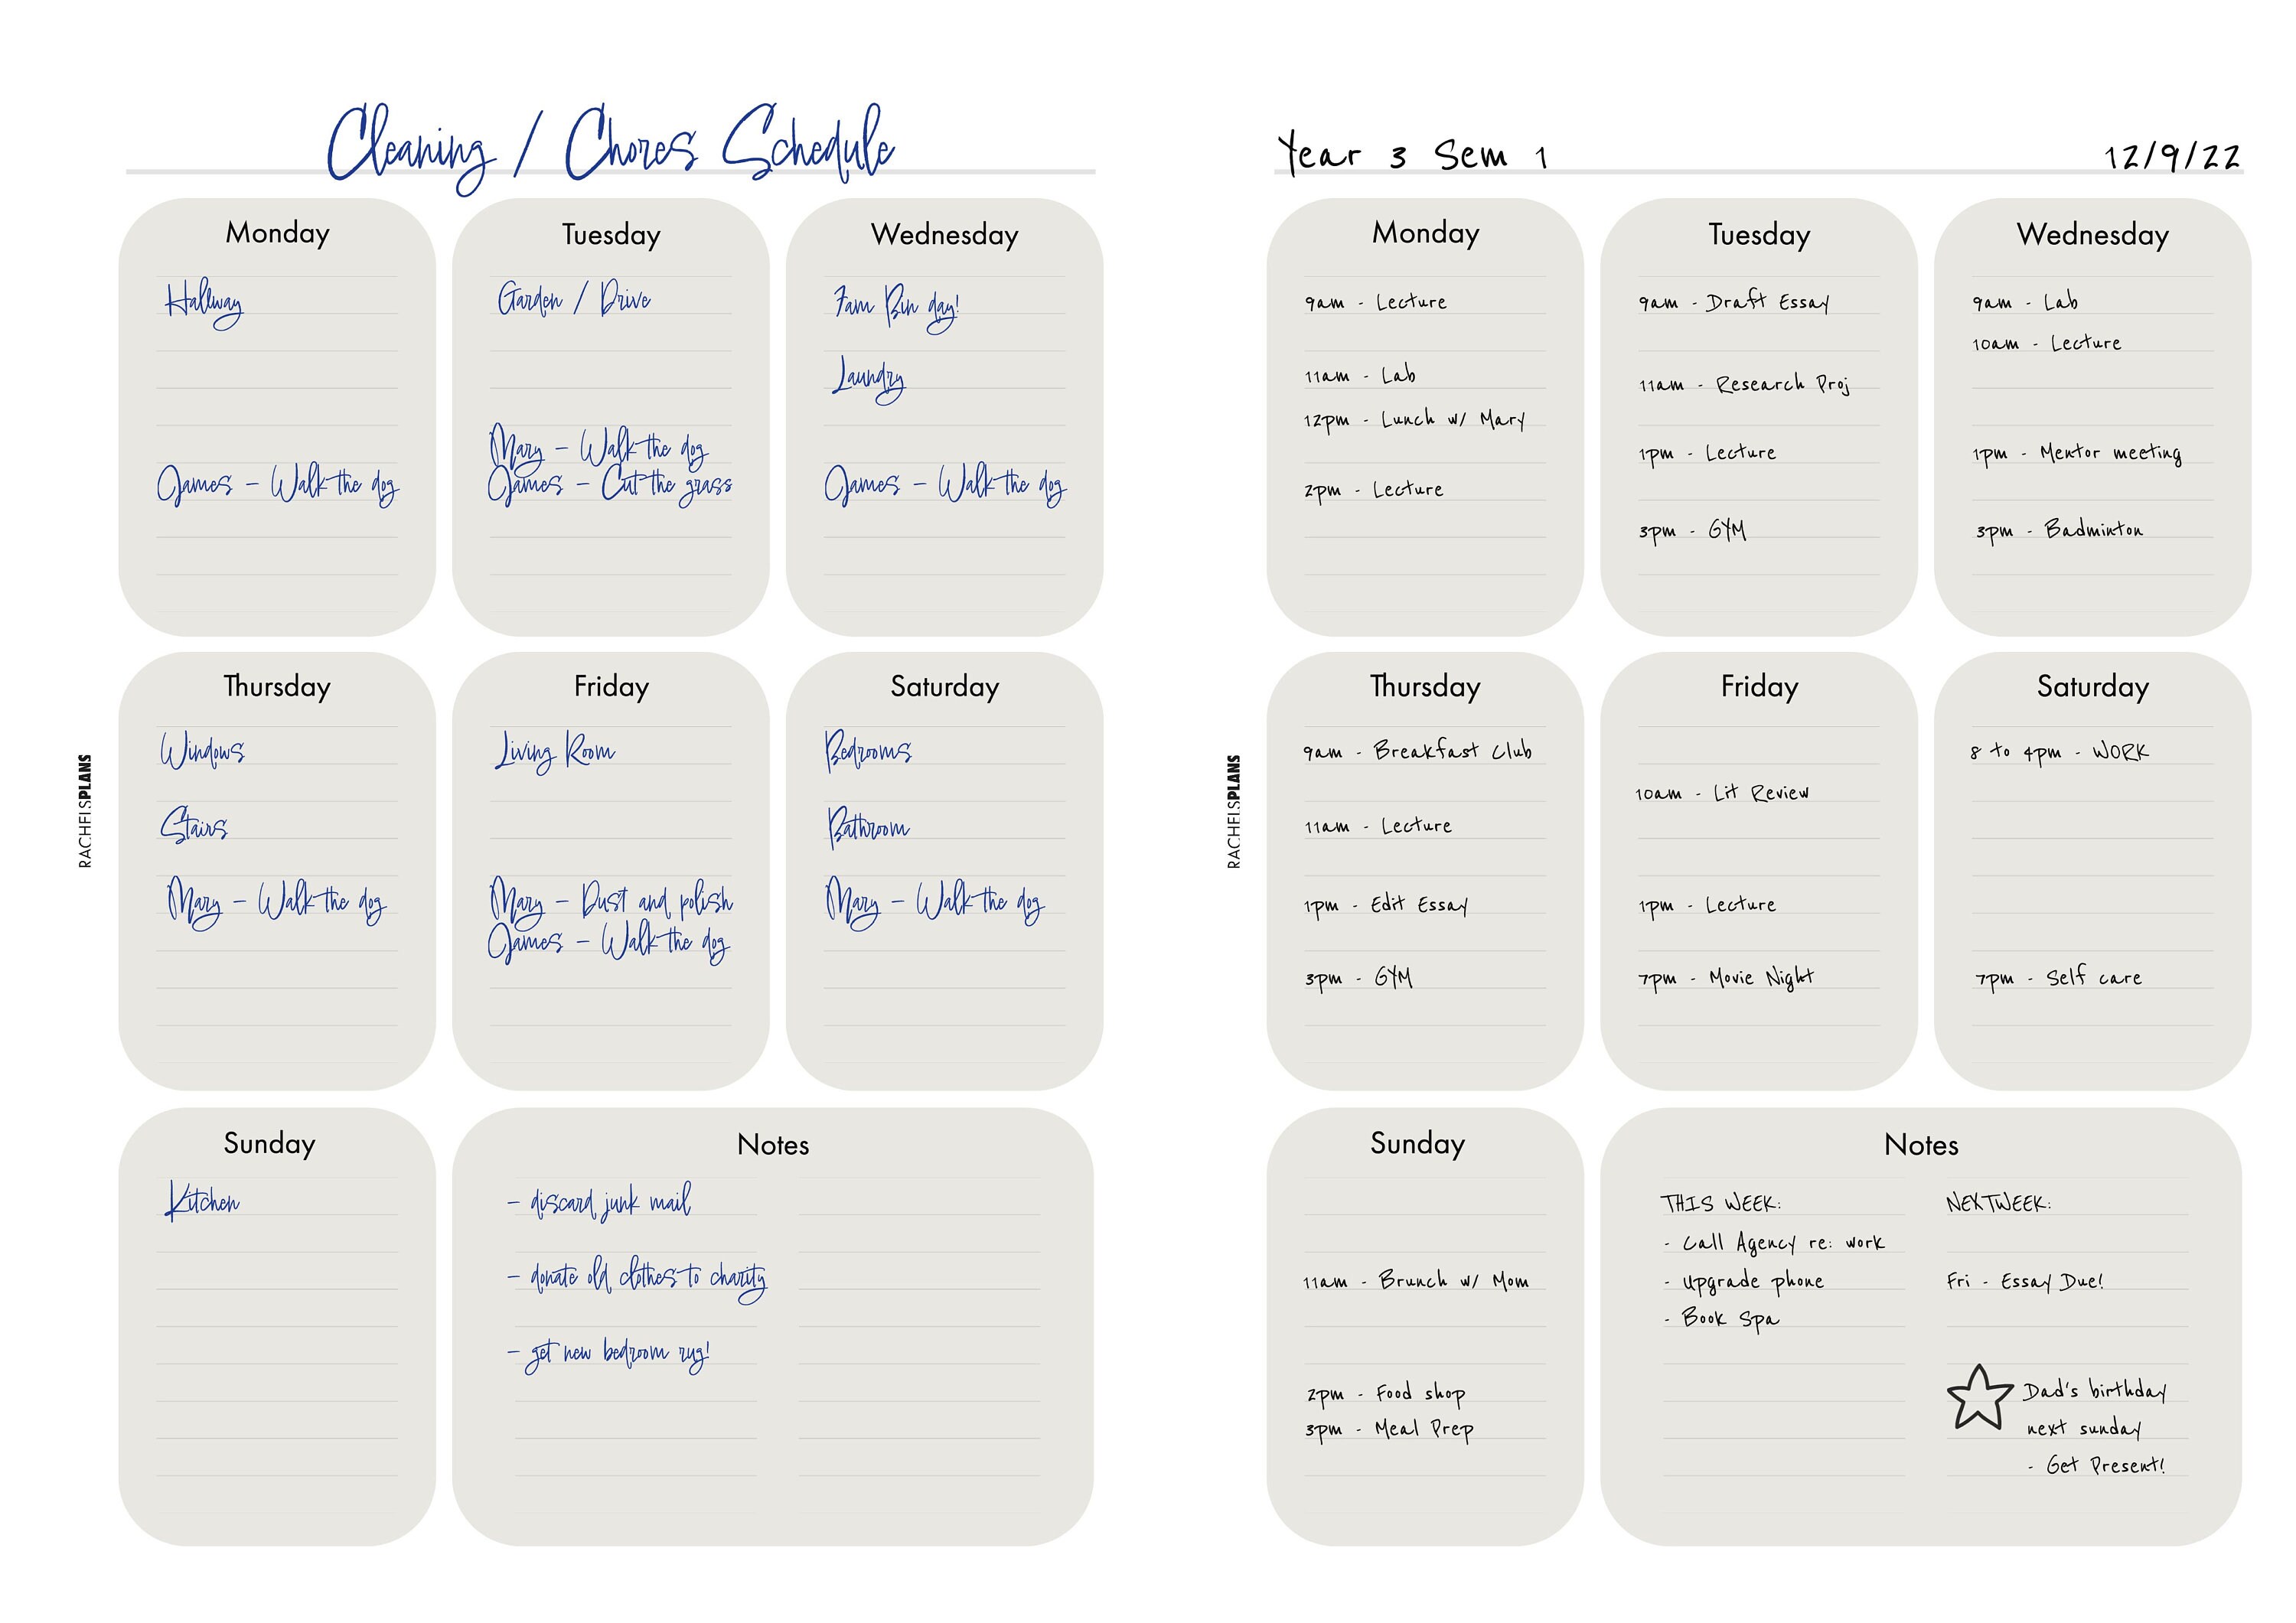 Cleaning / Chores Schedule
Monday
Hallway
James - Walk the dog
Tuesday
Garden / Drive
Mary - Walk the dog
James - Cut the grass
Wednesday
7am Bin day!
Laundry
James - Walk the dog
Thursday
Windows
Stairs
Mary - Walk the dog
Friday
Living Room
Mary - Dust and polish
James - Walk the dog
Saturday
Bedrooms
Bathroom
Mary - Walk the dog
Sunday
Kitchen
Notes
- discard junk mail
- donate old clothes to charity
- get new bedroom rug!
RACHELSPLANS
Year 3 Sem 1
12/9/22
Monday
9am - Lecture
11am - Lab
12pm - Lunch w/ Mary
2pm - Lecture
Tuesday
9am - Draft Essay
11am - Research Proj
1pm - Lecture
3pm - GYM
Wednesday
9am - Lab
10am - Lecture
1pm - Mentor meeting
3pm - Badminton
Thursday
9am - Breakfast Club
11am - Lecture
1pm - Edit Essay
3pm - GYM
Friday
10am - Lit Review
1pm - Lecture
7pm - Movie Night
Saturday
8 to 4pm - WORK
7pm - Self care
Sunday
11am - Brunch w/ Mom
2pm - Food shop
3pm - Meal Prep
Notes
THIS WEEK:
- Call Agency re: work
- Upgrade phone
- Book Spa
NEXT WEEK:
Fri - Essay Due!
Dad's birthday
next sunday
- Get Present!
RACHELSPLANS